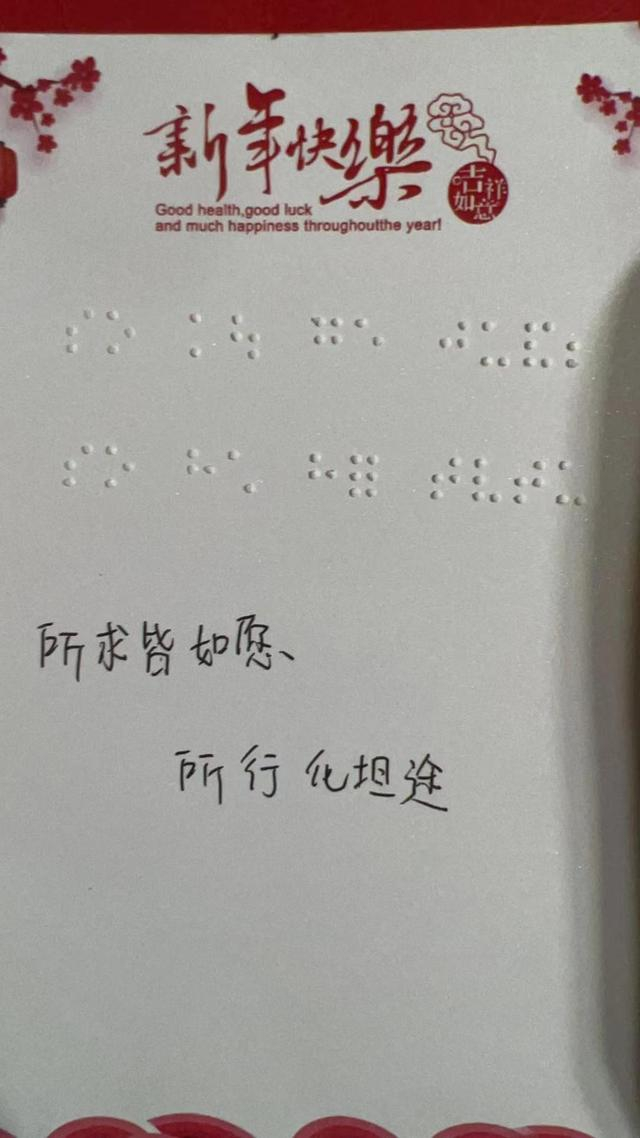 新年快樂
吉祥
如意
Good health,good luck
and much happiness throughoutthe year!
所求皆如愿、
所行化坦途